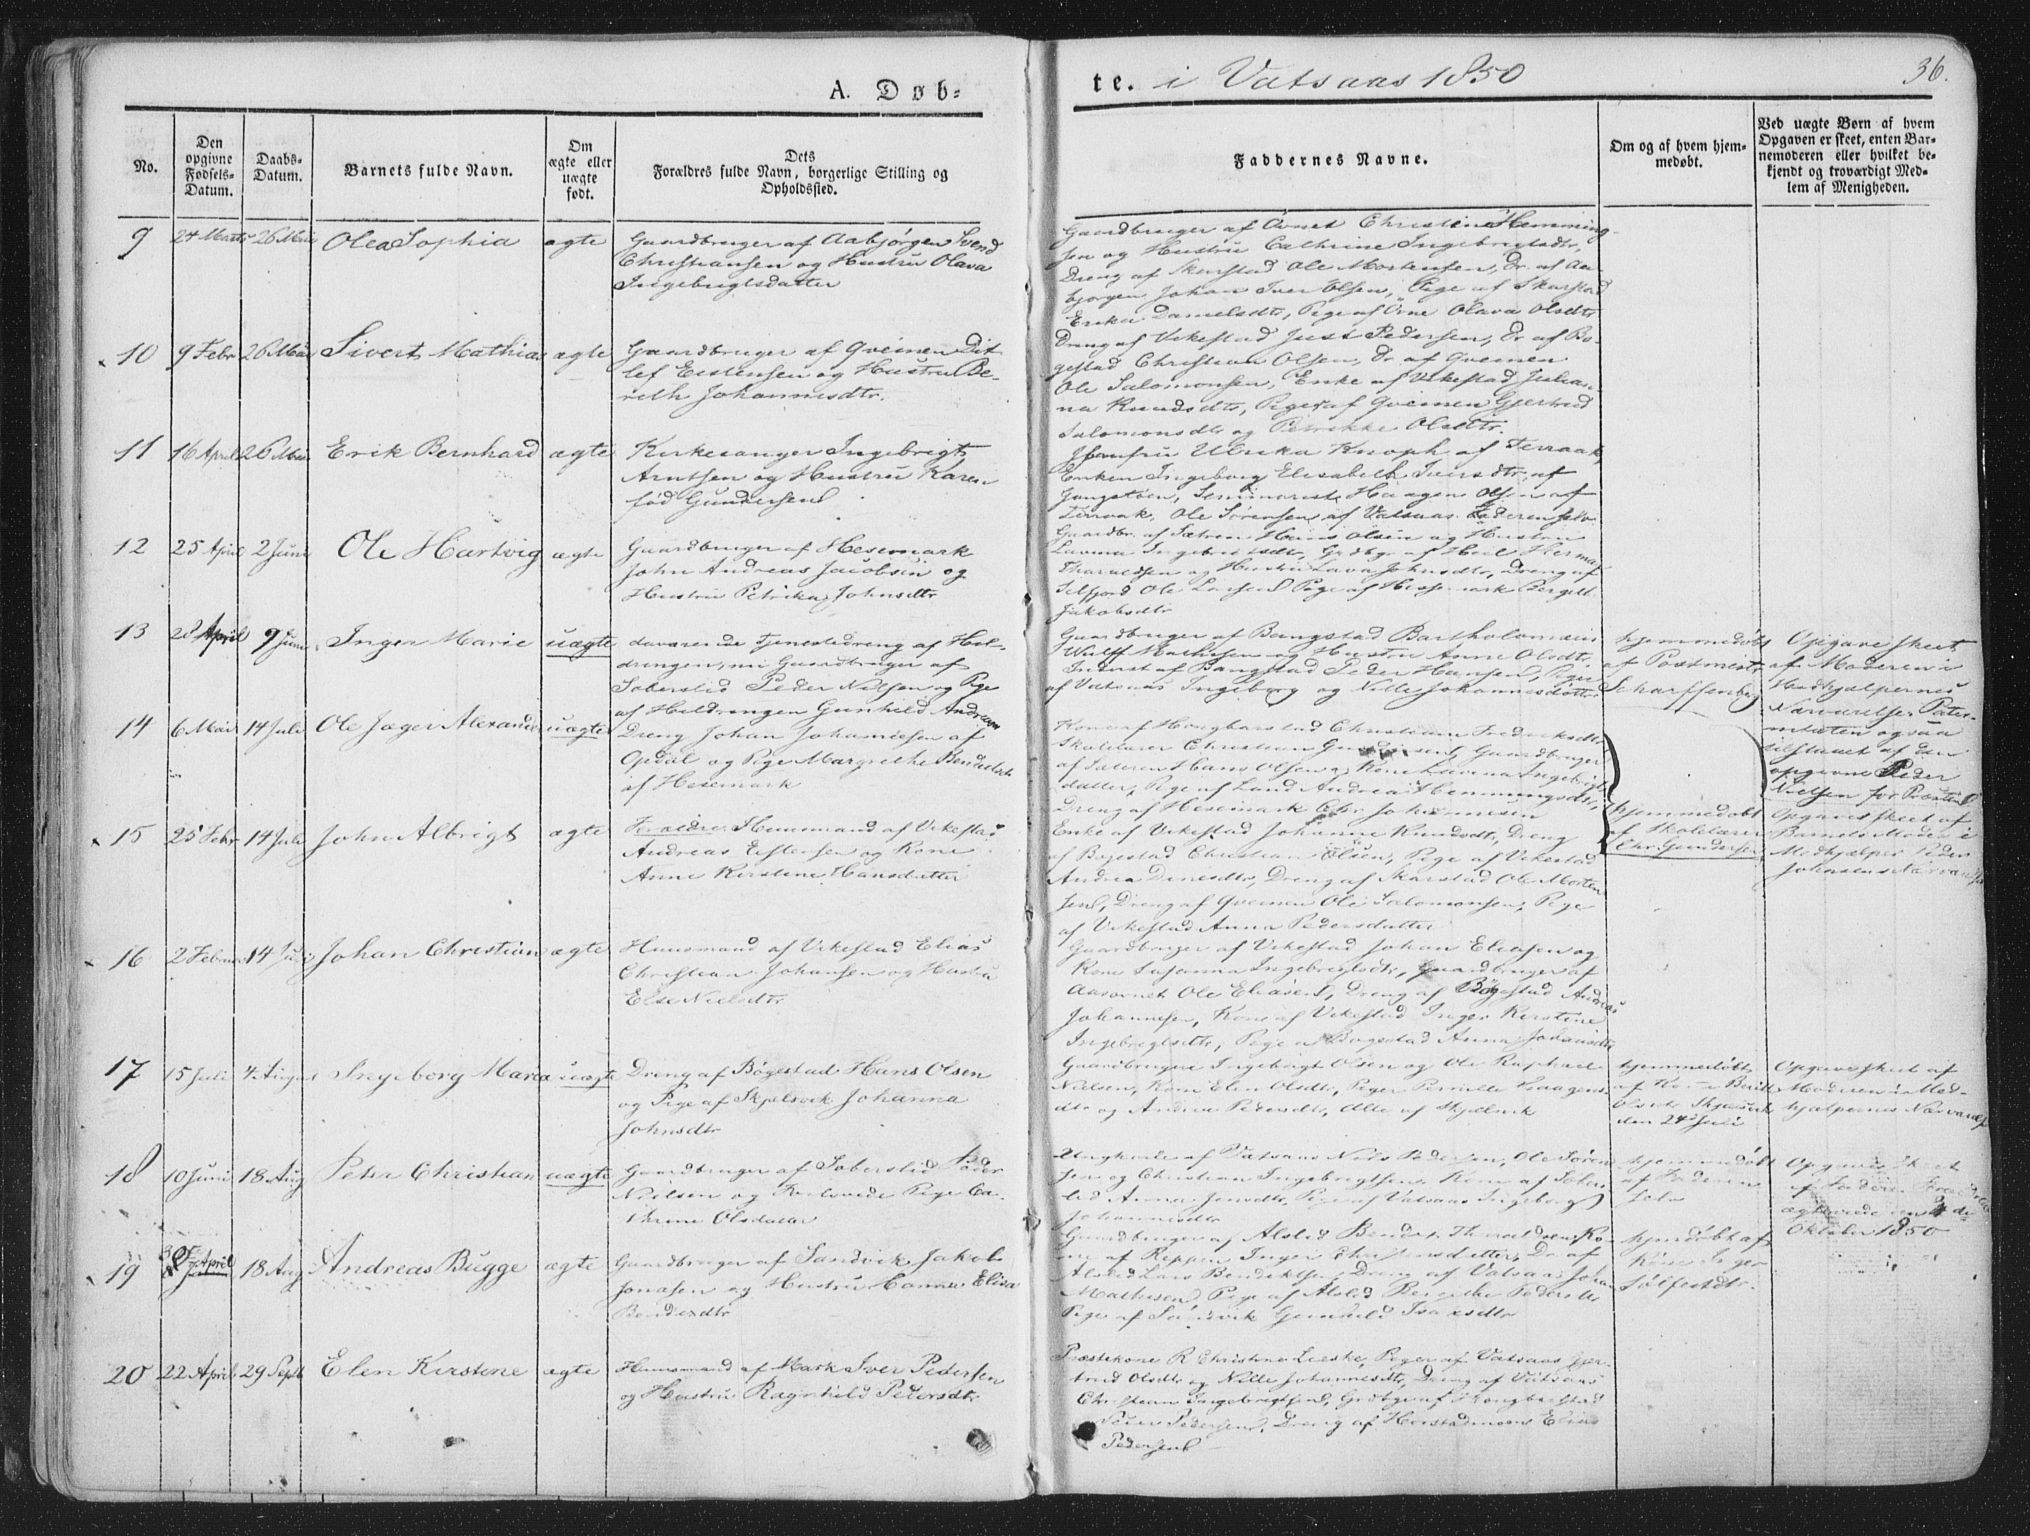 A. Døb=
te. i Vatsaas 1850
36.
No.
Den opgivne Fødsels-Datum.
Daabs-Datum.
Barnets fulde Navn.
Om ægte eller uægte født.
Dets Forældres fulde Navn, borgerlige Stilling og Opholdssted.
Faddernes Navne.
Om og af hvem hjem-medøbt.
Ved uægte Børn af hvem Opgaven er skeet, enten Bar-nemoderen eller hvilket be-kjendt og troværdigt Med-lem af Menigheden.
9 24 Marts 26 Mai Olea Sophia ægte
Gaardbruger af Aabjørgen Svend
Christiansen og Hustru Olava
Ingebrigtsdatter
Gaardbruger af Christen Hemming-
sen og Hustru Cathrine Ingebrigtsdtr,
Dreng af Skarstad Ole Mortensen, Dr. af Aa-
bjørgen Johan Iver Olsen, Pige af Skarstad
Erika Danielsdtr, Pige af Olava Olsdtr
10 9 Febr 26 Mai Sivert Mathias ægte
Gaardbruger af Qveinen Dit
lef Eistensen og Hustru Be-
reth Johannesdtr.
Dreng af Vikestad Just Pedersen, Dr. af Bø-
gestad Christian Olsen, Dr. af Qveinen
Ole Salomonsen, Enke af Vikestad Julian-
na Knudsdtr, Piger af Qveinen Gjertrud
Salomonsdtr og Petrikke Olsdtr.
11 16 April 26 Mai Erik Bernhard ægte
Kirkesanger Ingebrigt
Arntsen og Hustru Karen
fød Gundersen
Jomfru Ulrika Knoph af Terraak,
Enken Ingeborg Elisabeth Iversdtr af
Seminarist Haagen Olsen af
Terraak, Ole Sørensen af Vatsaas Faderen selv
12 25 April 2 Juni Ole Hartvig ægte
Gaardbruger af Hesemark
John Andreas Jacobsen og
Hustru Petrika Johnsdtr
Gaardbr. af Sætren Hans Olsen og Hustru
Lavina Ingebrigtsdtr, Grdbgr af Heel
Tharaldsen og Hustru Lava Johnsdtr, Dreng af
Ole Larsen Pige af Hesemark
Jakobsdtr
13 28 April 9 Juni Inger Marie uægte
daværende Tjenestedreng af Hel-
drengen, nu Gaardbruger af
Soberstid Peder Nilsen og Pige
af Heldrengen Gunhild Andreas
Gaardbruger af Bangstad Bartholomæus
Wulff Mathisen og Hustru Anne Olsdtr
af Bangstad Peder Hansen, Piger
af Vatsaas Ingeborg og Nille Johannesdøttre
hjemmedøbt
af Postmester
Scharffenberg
Opgave skeet
af Moderen i
Medhjælpernes
Nærværelse. Pater-
niteten ogsaa
tilstaaet af den
opgivne Peder
Nielsen for Præsten
14 6 Mai 14 Juli Ole Jæger Alexander uægte
Dreng Johan Johannesen af
Opdal og Pige Margrethe Bendixdtr
af Hesemark
Kone af Hongbarstad Christiana Fredriksdtr
Skolelærer Christian Gundersen, Gaardbruger
af Sæteren Hans Olsen og Kone Lavina Ingebrigts
datter, Pige af Lund Andrea Hemmingsdtr,
Dreng af Hesemark Chr. Johannesen
hjemmedøbt
af Skolelærer
Chr. Gundersen
Opgave skeet af
Barnets Moder i
Medhjælper Peder
Johnsens Nærværelse
15 25 Febr 14 Juli John Albrigt ægte
Forældre: Huusmand af Vikestad
Andreas Eistensen og Kone
Anne Kirstine Hansdatter
Enke af Vikestad Johanne Knudsdtr, Dreng
af Bøgestad Christian Olsen, Pige af Vikestad
Andrea Dinesdtr, Dreng af Skarstad Ole Morten
sen, Dreng af Qveinen Ole Salomonsen, Pige
af Vikestad Anna Pedersdatter
16 2 Februar 14 Juli Johan Christian ægte
Huusmand af Vikestad Elias
Christian Johansen og Hustru
Else Nielsdtr
Gaardbruger af Vikestad Johan Eliasen og
Kone Susanna Ingebrigtsdtr, Gaardbruger af
Aasornet Ole Eliasen, Dreng af Bøgestad Andreas
Johannesen, Kone af Vikestad Inger Kirstine
Ingebrigtsdtr, Pige af Bøgestad Anna Johansdtr
17 15 Juli 4 August Ingeborg Maria uægte
Dreng af Bøgestad Hans Olsen
og Pige af Skjelsvik Johanna
Johnsdtr
Gaardbrugere Ingebrigt Olsen og Ole Raphael
Nielsen, Kone Elen Olsdtr, Piger Pernille Haagens
dtr og Andrea Pedersdtr, Alle af Skjelsvik
hjemmedøbt
af Kone Berith
Olsdtr Skjelsvik
den 24 Juli
Opgave skeet af
Moderen i Med-
hjælpernes Nærværelse
18 10 Juni 18 Aug Peter Christian uægte
Gaardbruger af Soberstid Peder
Neilsen og Forlovede Pige Ca-
thrine Olsdatter
Ungkarle af Vatsaas Nils Pedersen, Ole Søren
sen og Christian Ingebrigtsen, Kone af Sober-
stid Anna Jensdtr, Pige af Vatsaas Ingeborg
Johannesdtr
hjemmedøbt
af Faderen
selv
Opgave skeet
af Faderen
ægteviede den
Oktober 1850
19 30 April 18 Aug Andreas Bugge ægte
Gaardbruger af Sandvik Jakob
Jonasen og Hustru Hanna Elisa
Bendixdtr
Gaardbruger af Alslid Bendix Tharaldsen, Ko-
ne af Reppen Inger Christensdatter, Dr. af
Alslid Lars Bendiktsen, Dreng af Vatsaas Johan
Mathisen, Pige af Alslid Pedersdtr
Pige af Sandvik Gunhild Isaksdtr
hjemdøbt af
Kone Inger
20 22 April 29 Sept Elen Kirstine ægte
Huusmand af Mark Iver Pedersen
og Hustru Ragnhild Petersdtr
Præstekone R Christine Lieske, Piger af Vatsaas Gjer-
trud Olsdtr og Nille Johannesdtr, Dreng af Vatsaas
Christian Ingebrigtsen, Grdbgr af Hongbarstad
Peder Pedersen, Dreng af Horstadmoens Elias
Pedersen